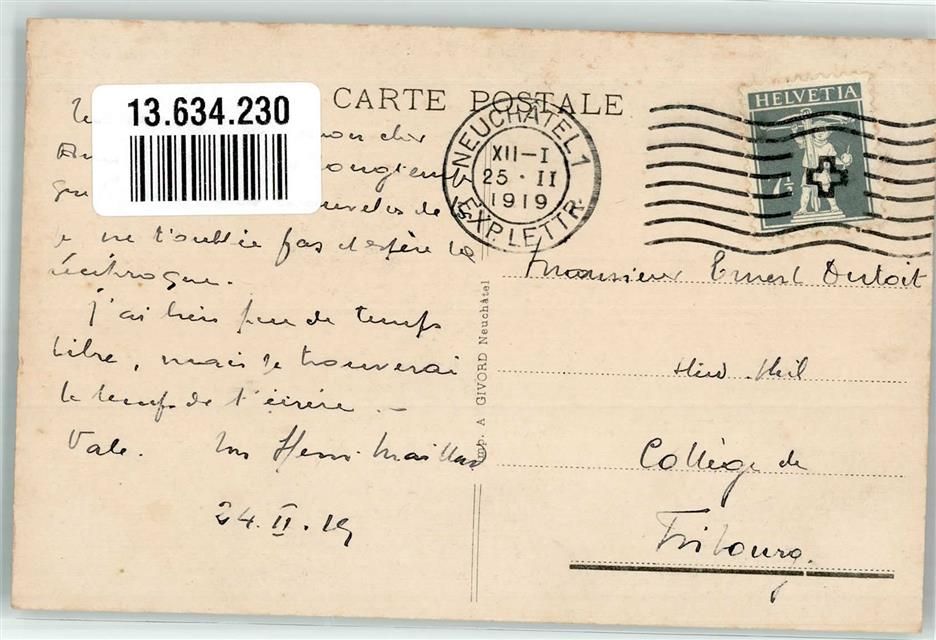 13.634.230
CARTE POSTALE
NEUCHÂTEL 1
XII–I
25·II
1919
EXP. LETTR.
HELVETIA
7½
mon cher
nouvelles de
je ne t'oublie pas et espère la
réciproque.
J'ai bien peu de temps
libre, mais je trouverai
le temps de t'écrire. –
Vale. Henri Maillard
24.II.19
Imp. A GIVORD Neuchâtel
Monsieur Ernest Dutoit
Stud. Phil
Collège de
Fribourg.